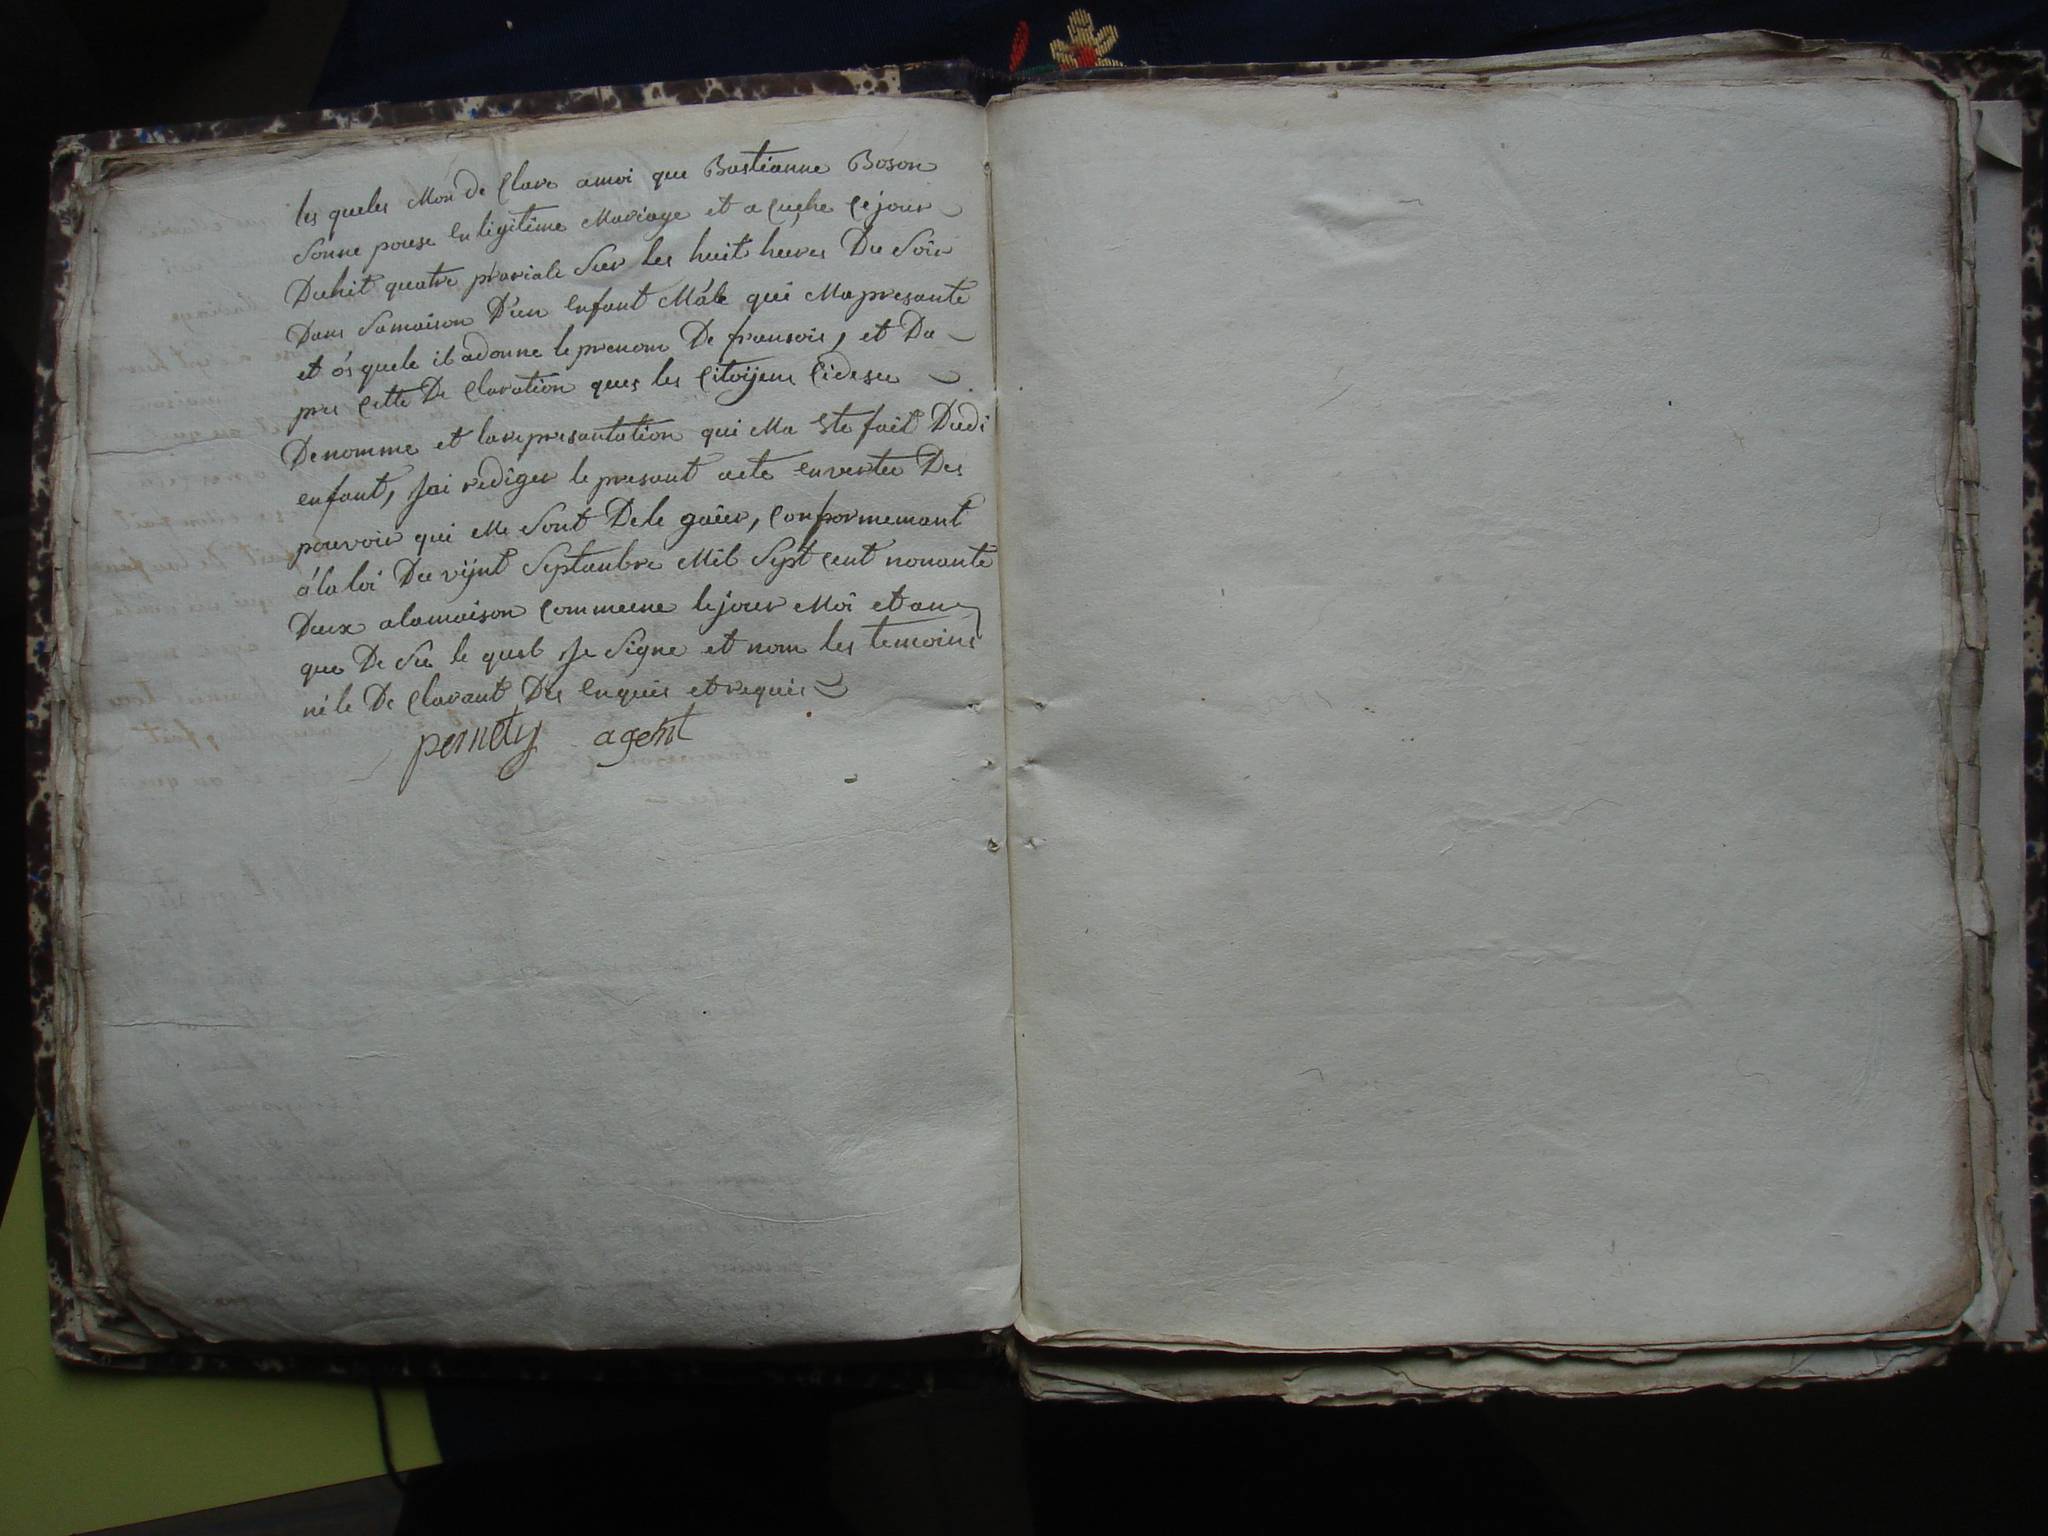 les queles Mon de Clare amoi que Bastianne Boson
Sonne pouse en ligitime Mariage et a cuche Ce jour
Duhit quatre prariale Sur les huit heures Du Soir
Dans Samaison D'un enfant Mâle qui Mapresante
et os quele il adonne le prenom De fransois, et Da
pres Cette De Claration ques les Citoijens Cidesu
Denomme et larepresantation qui Ma ete fait Dudi
enfant, Jai rediger le presant acte envertu Des
pouvoir qui Me Sont Dele guéer, Conformemant
á la loi Du vijnt Septanbre Mil Sept Cent nonante
Deux alamaison Commune lejour Moi et an
que De Su le quel Je Signe et nom les temoins
né le De Clarant Des enquis et requis
pernety agent